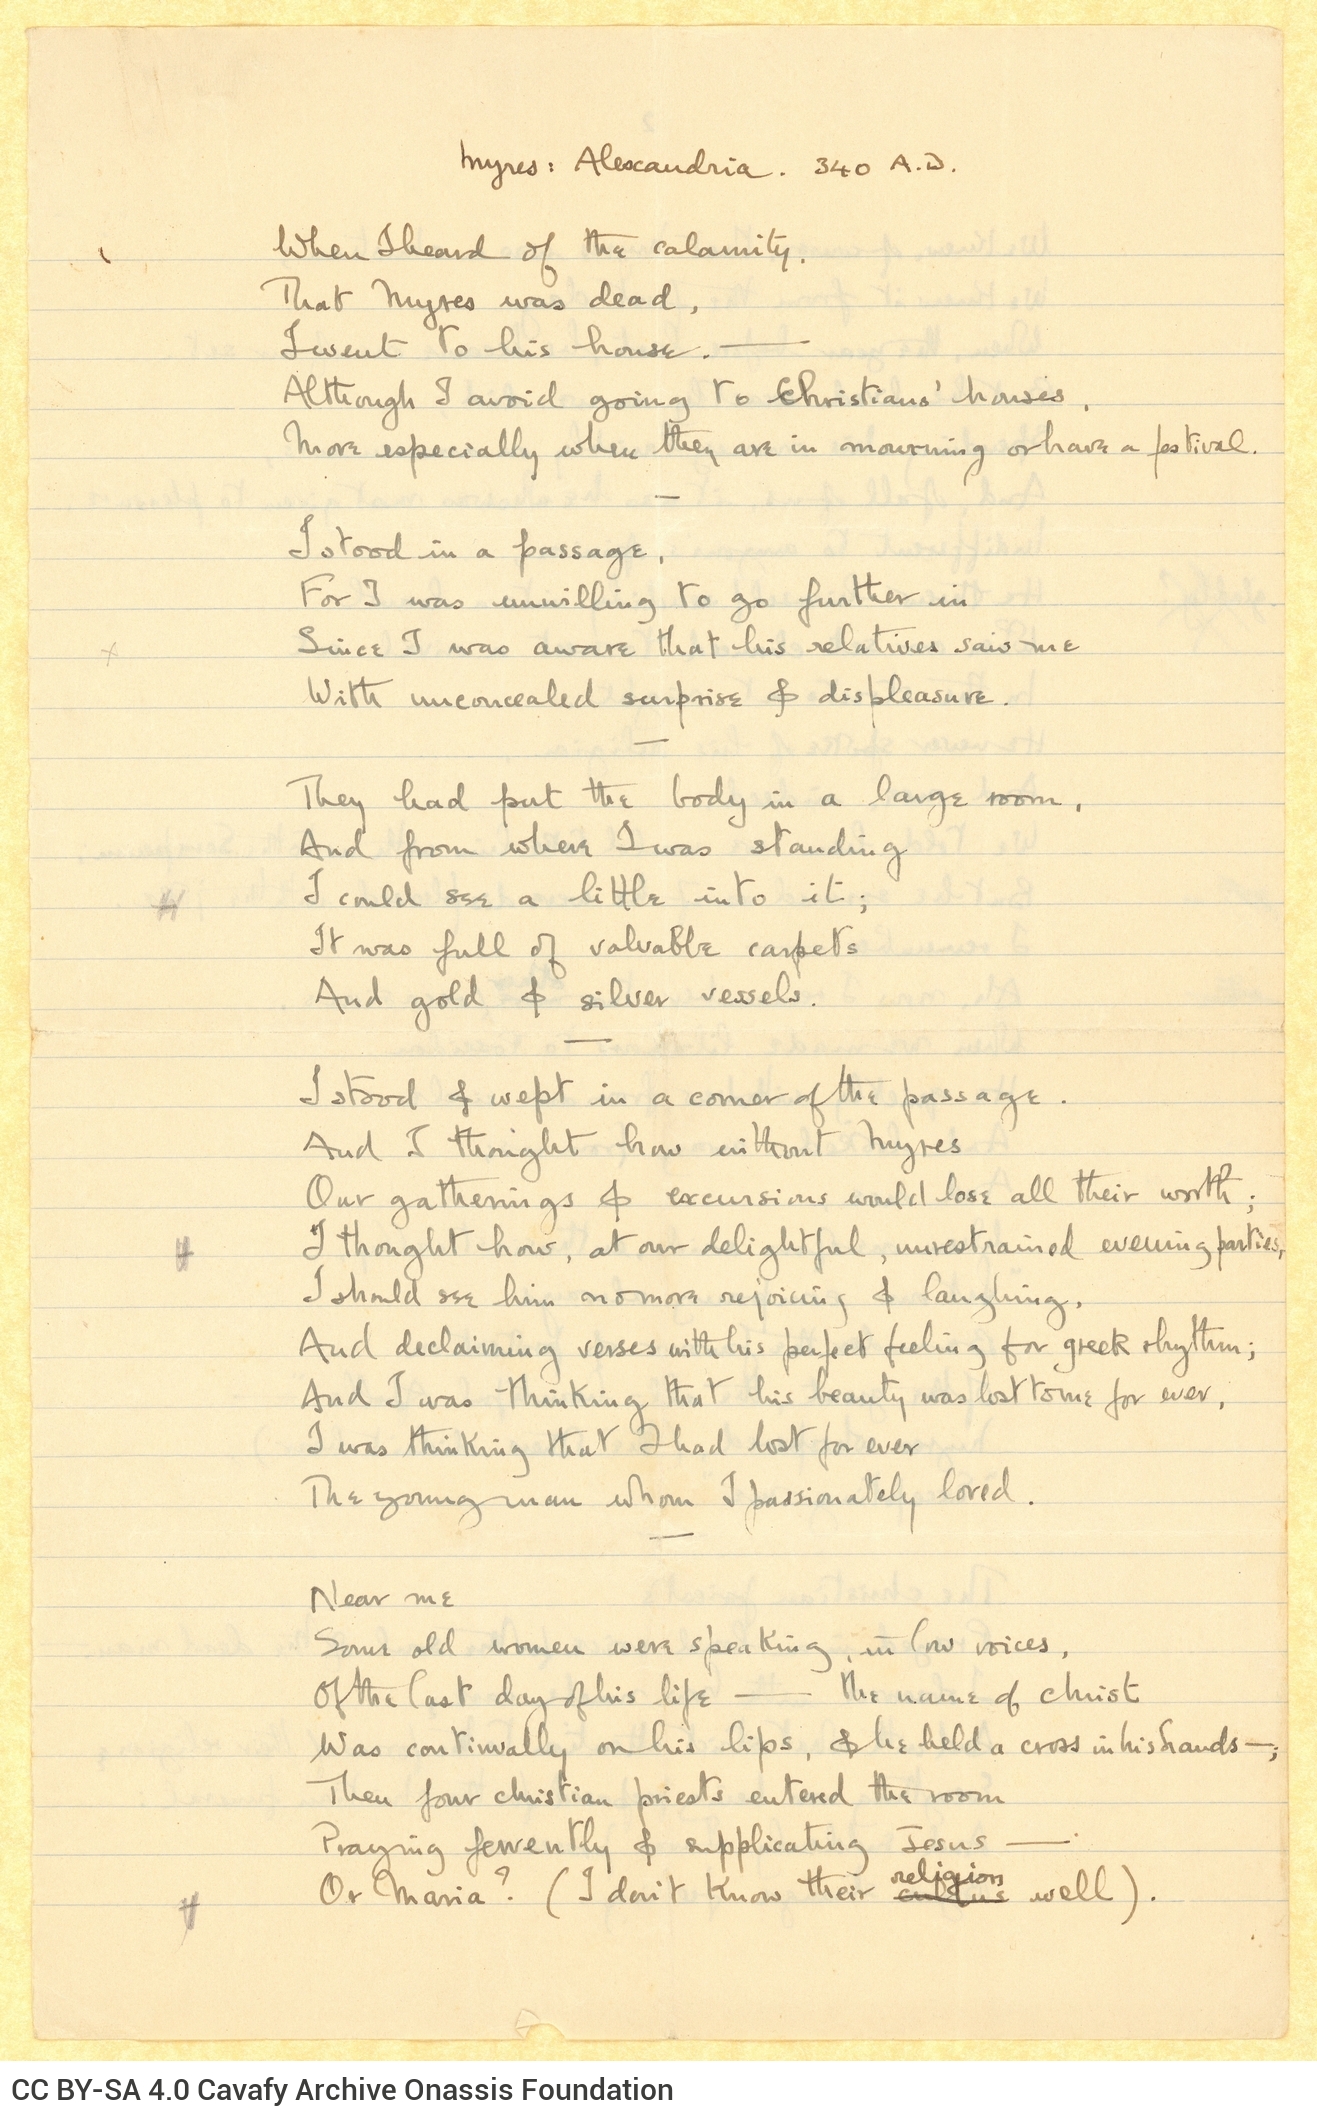 Myres: Alexandria. 340 A.D.
When I heard of the calamity,
That Myres was dead,
I went to his house. —
Although I avoid going to Christians' houses,
More especially when they are in mourning or have a festival.
—
I stood in a passage,
For I was unwilling to go further in
Since I was aware that his relatives saw me
With unconcealed surprise & displeasure.
—
They had put the body in a large room,
And from where I was standing
I could see a little into it;
It was full of valuable carpets
And gold & silver vessels.
—
I stood & wept in a corner of the passage.
And I thought how without Myres
Our gatherings & excursions would lose all their worth;
I thought how, at our delightful, unrestrained evening parties,
I should see him no more rejoicing & laughing,
And declaiming verses with his perfect feeling for greek rhythm;
And I was thinking that his beauty was lost to me for ever,
I was thinking that I had lost for ever
The young man whom I passionately loved.
—
Near me
Some old women were speaking, in low voices,
Of the last day of his life — the name of christ
Was continually on his lips, & he held a cross in his hands —;
Then four christian priests entered the room
Praying fervently & supplicating Jesus —
religion
Or Maria? (I don't know their cultus well).
CC BY-SA 4.0 Cavafy Archive Onassis Foundation